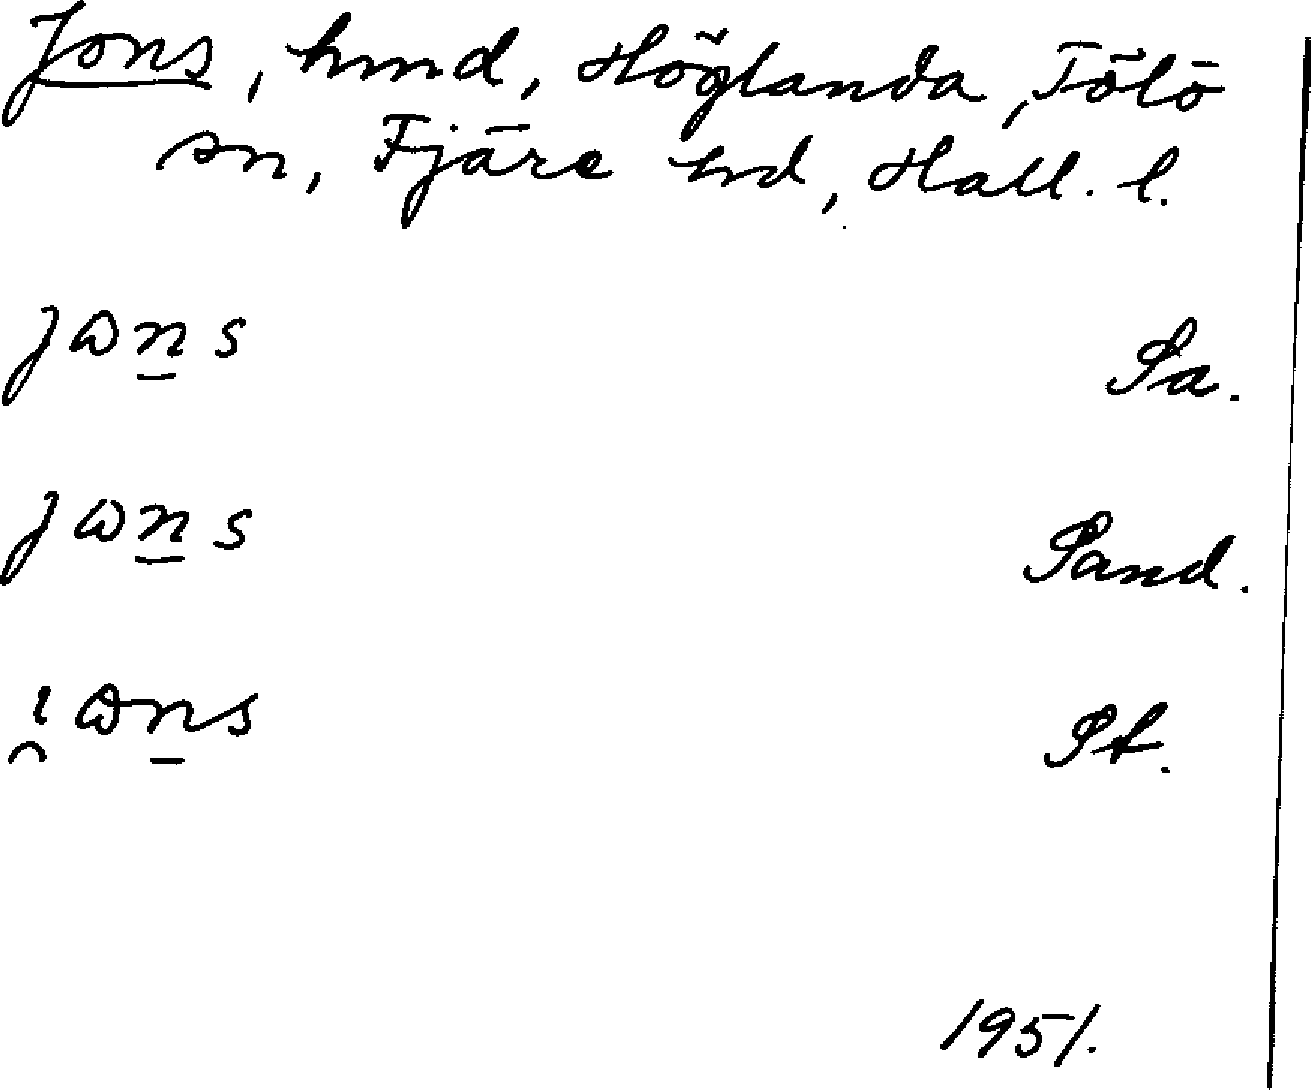 Jons, hmd, Höglanda, Tölö
sn, Fjäre hd, Hall. l.
jɷn̲s Sa.
jɷn̲s Sand.
ı̯ɷn̲s St.
1951.